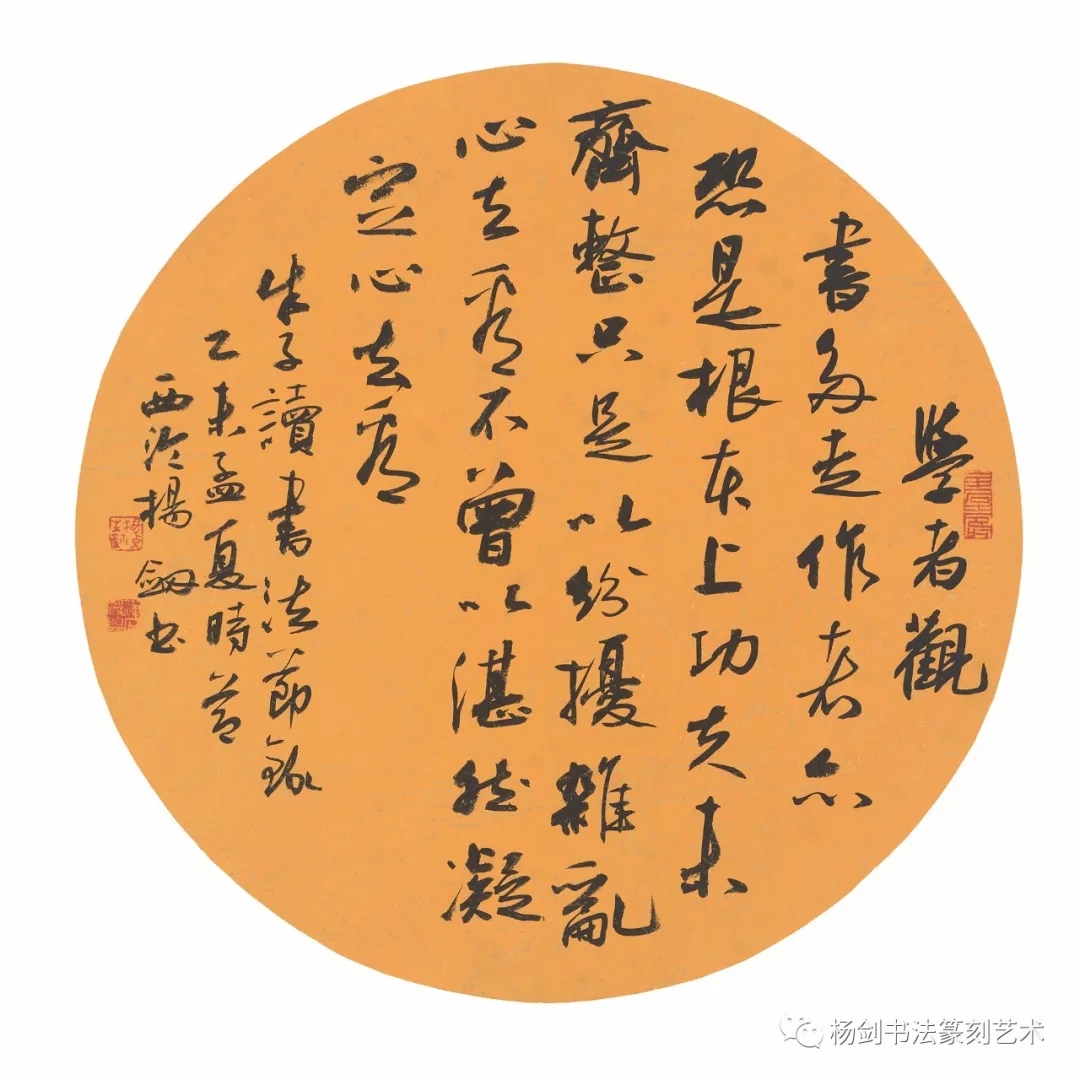 學者觀
書多走作者亦
恐是根本上功夫未
齊整只是以紛擾雜亂
心去看不曾以湛然凝
定心去看
朱子讀書法節錄
乙未孟夏時
西泠楊劔書
杨剑书法篆刻艺术